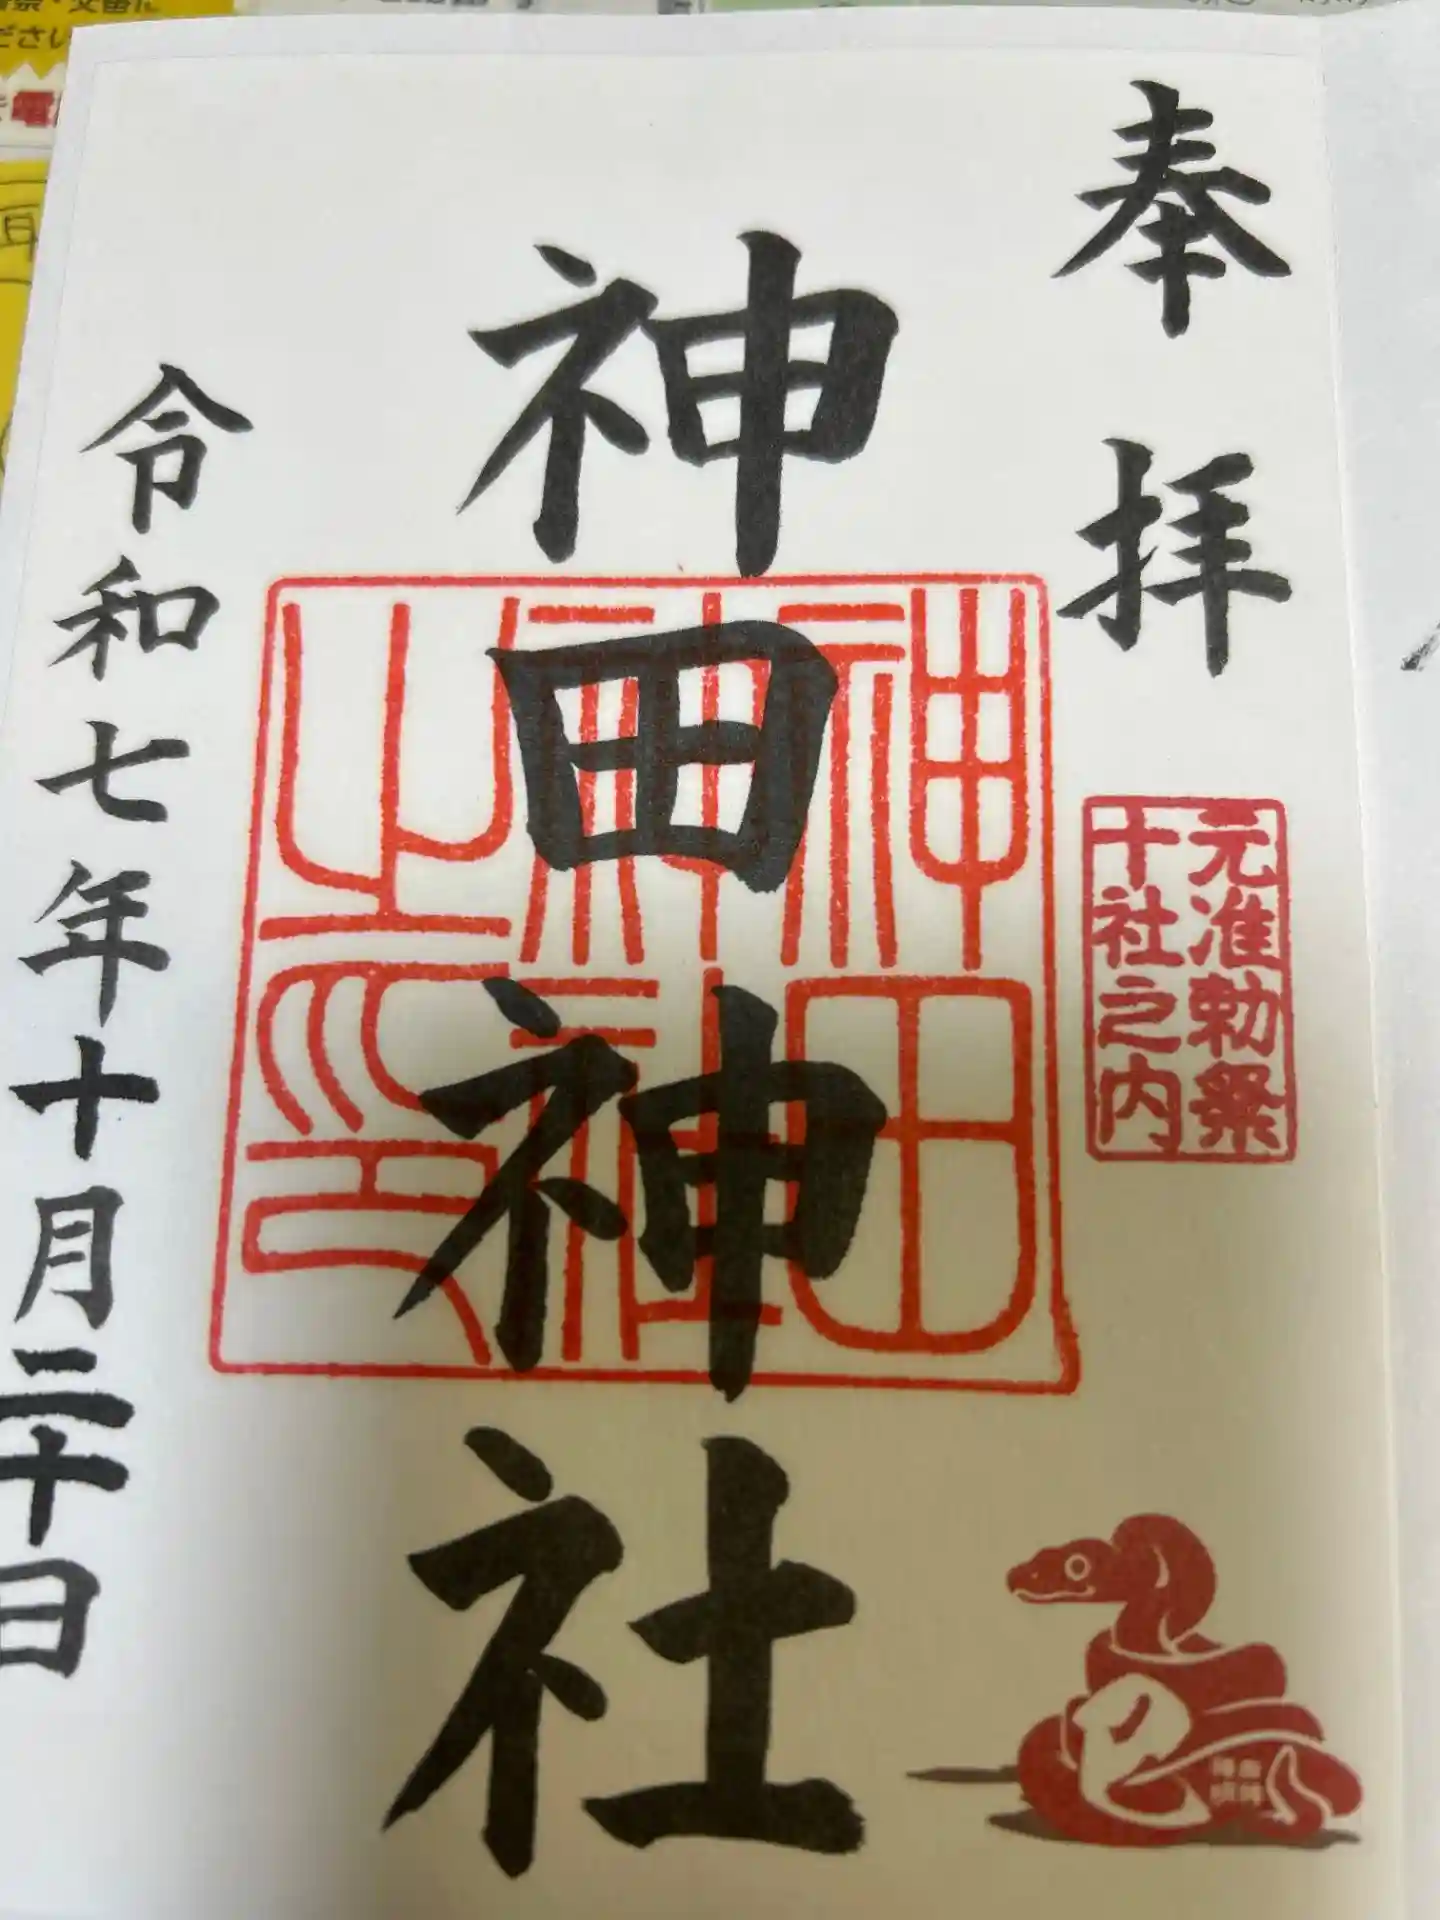 奉拝
元准勅祭
十社之内
神田神社
神田
神社
之印
巳
令和七年十月二十日